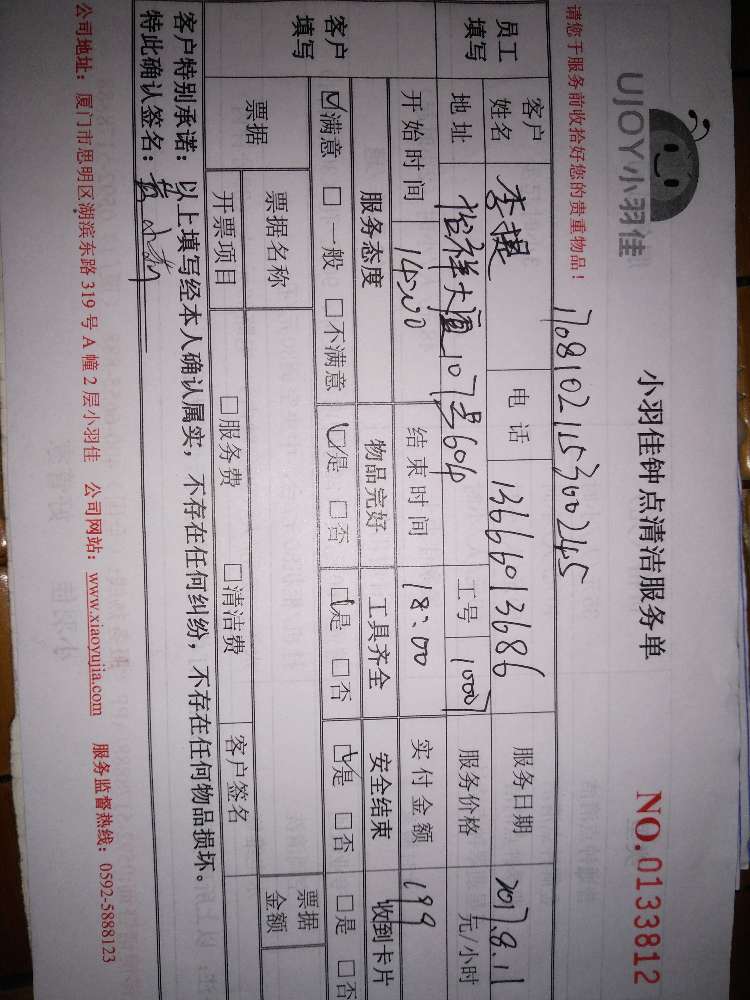 UJOY小羽佳
小羽佳钟点清洁服务单
NO.0133812
请您于服务前收拾好您的贵重物品！
1708102115300245
员工填写
客户姓名 李提 电话 13666013686 服务日期 2017.8.11
地址 怡祥大厦107号604 工号 10007 服务价格 元/小时
开始时间 14:00 结束时间 18:00 实付金额 199
客户填写
服务态度 物品完好 工具齐全 安全结束 收到卡片
☑满意 □一般 □不满意 ☑是 □否 ☑是 □否 ☑是 □否 □是 □否
票据 票据名称 票据金额
开票项目 □服务费 □清洁费 客户签名
客户特别承诺：以上填写经本人确认属实，不存在任何纠纷，不存在任何物品损坏。
特此确认签名：
公司地址：厦门市思明区湖滨东路 319 号 A 幢 2 层小羽佳 公司网站：www.xiaoyujia.com 服务监督热线：0592-5888123